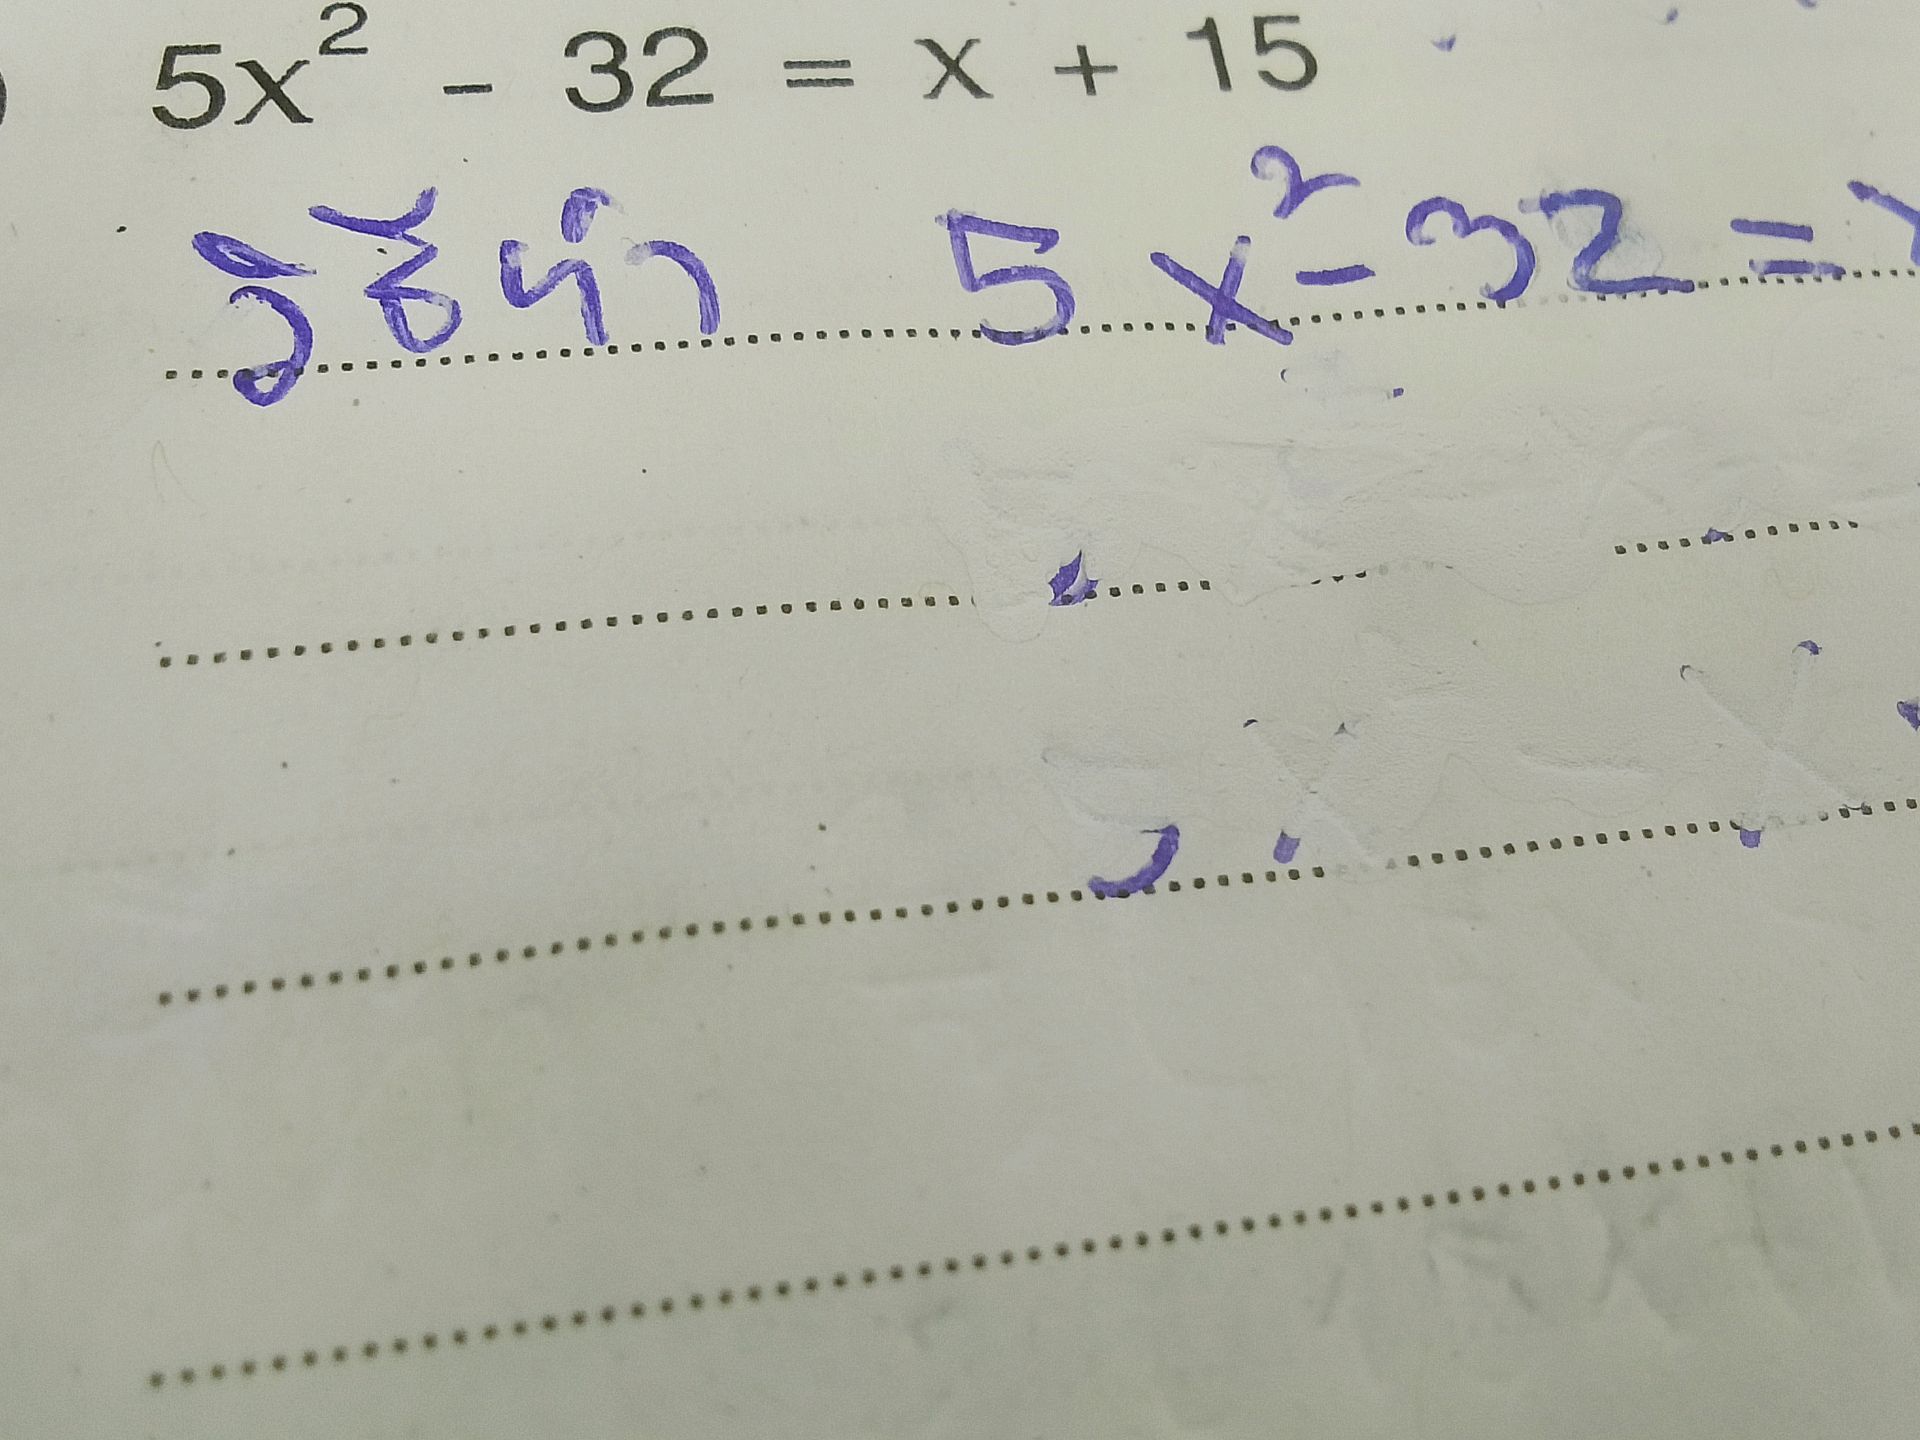 5x² - 32 = x + 15
วิธีทำ 5x² - 32 =